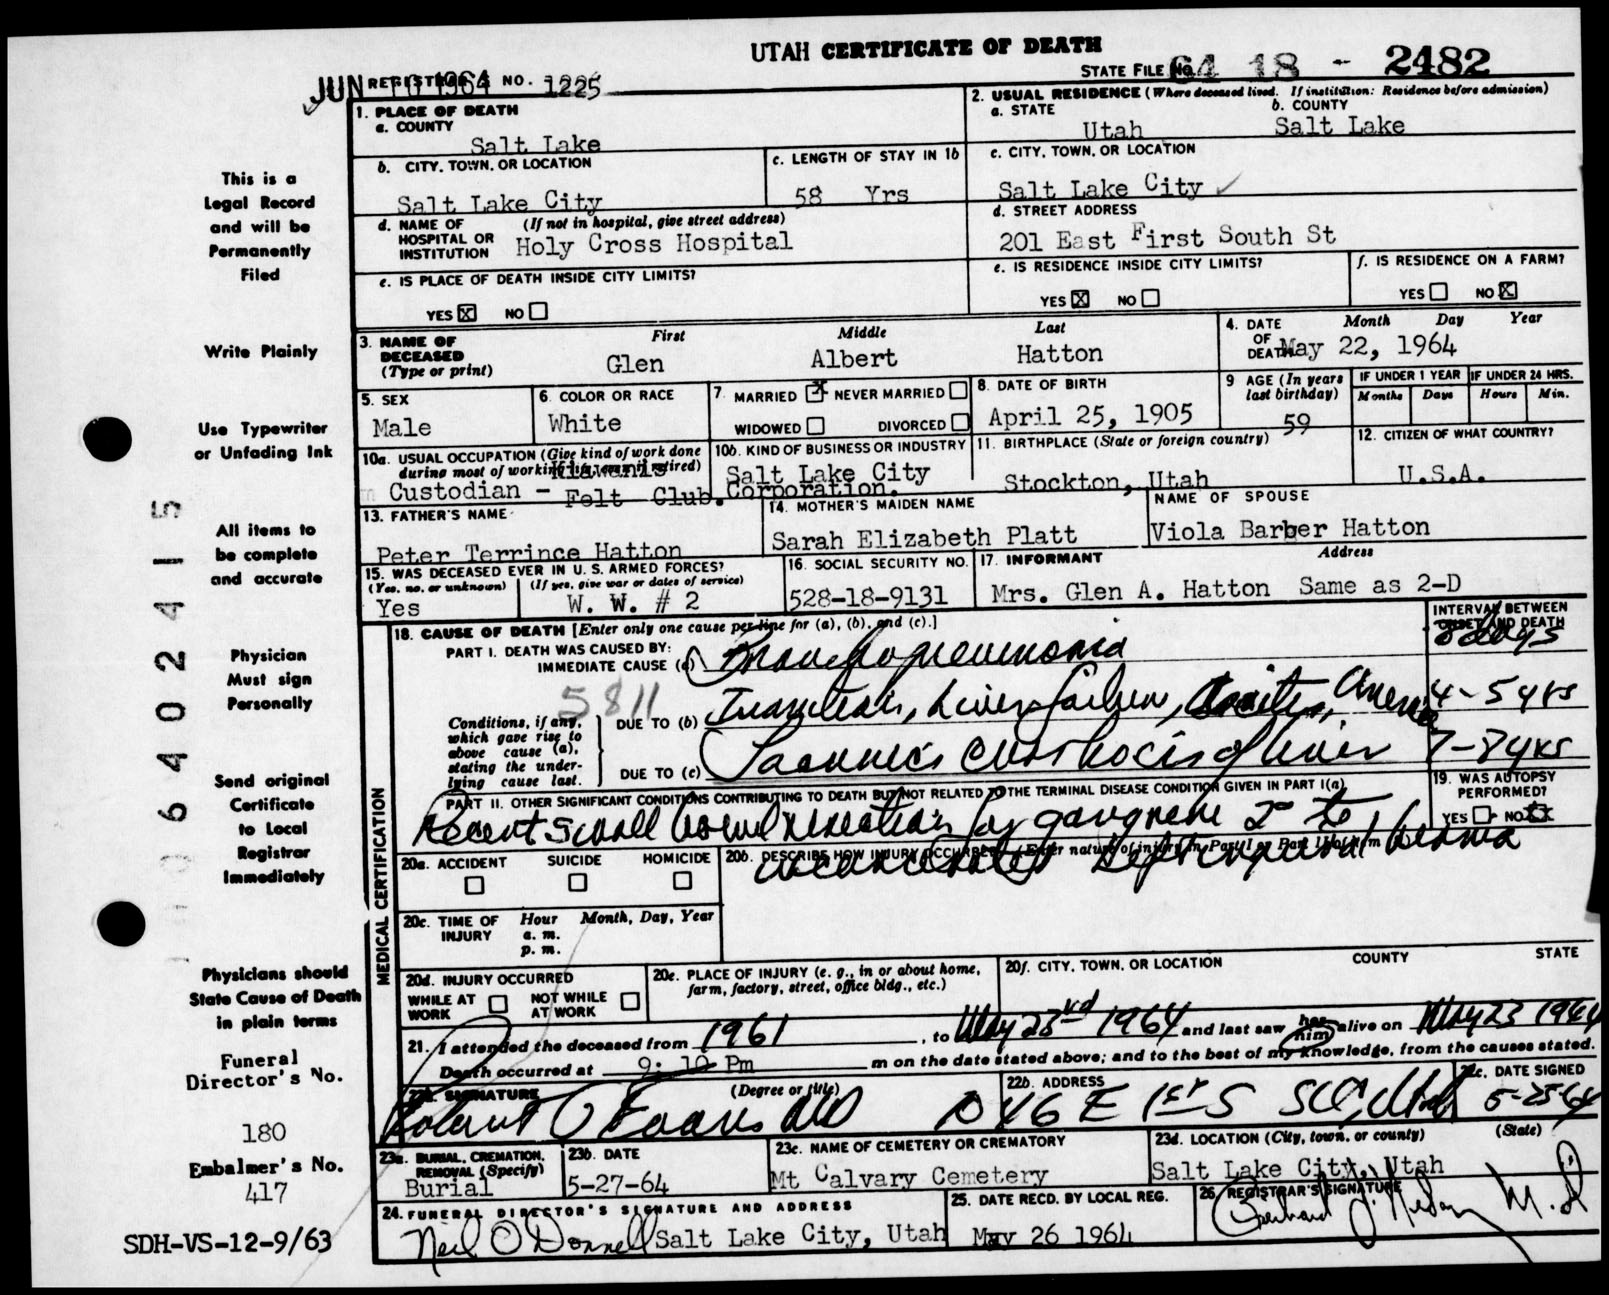 UTAH CERTIFICATE OF DEATH
JUN 10 1964 REGISTRAR'S NO. 1225
STATE FILE No. 64 18 - 2482
1. PLACE OF DEATH
a. COUNTY
Salt Lake
2. USUAL RESIDENCE (Where deceased lived. If institution: Residence before admission)
a. STATE b. COUNTY
Utah Salt Lake
b. CITY, TOWN, OR LOCATION
Salt Lake City
c. LENGTH OF STAY IN 1b
58 Yrs
c. CITY, TOWN, OR LOCATION
Salt Lake City
d. NAME OF HOSPITAL OR INSTITUTION (If not in hospital, give street address)
Holy Cross Hospital
d. STREET ADDRESS
201 East First South St
e. IS PLACE OF DEATH INSIDE CITY LIMITS?
YES X NO
e. IS RESIDENCE INSIDE CITY LIMITS?
YES X NO
f. IS RESIDENCE ON A FARM?
YES NO X
3. NAME OF DECEASED (Type or print)
First Middle Last
Glen Albert Hatton
4. DATE OF DEATH Month Day Year
May 22, 1964
5. SEX
Male
6. COLOR OR RACE
White
7. MARRIED X NEVER MARRIED
WIDOWED DIVORCED
8. DATE OF BIRTH
April 25, 1905
9 AGE (In years last birthday)
59
IF UNDER 1 YEAR IF UNDER 24 HRS.
Months Days Hours Min.
10a. USUAL OCCUPATION (Give kind of work done during most of working life, even if retired)
Kiwanis
Custodian - Felt Club.
10b. KIND OF BUSINESS OR INDUSTRY
Salt Lake City
Corporation.
11. BIRTHPLACE (State or foreign country)
Stockton, Utah
12. CITIZEN OF WHAT COUNTRY?
U.S.A.
13. FATHER'S NAME
Peter Terrince Hatton
14. MOTHER'S MAIDEN NAME
Sarah Elizabeth Platt
NAME OF SPOUSE
Viola Barber Hatton
15. WAS DECEASED EVER IN U. S. ARMED FORCES?
(Yes, no, or unknown) (If yes, give war or dates of service)
Yes W. W. # 2
16. SOCIAL SECURITY NO.
528-18-9131
17. INFORMANT Address
Mrs. Glen A. Hatton Same as 2-D
MEDICAL CERTIFICATION
18. CAUSE OF DEATH [Enter only one cause per line for (a), (b), and (c).]
INTERVAL BETWEEN ONSET AND DEATH
PART I. DEATH WAS CAUSED BY:
IMMEDIATE CAUSE (a) Bronchopneumonia days
5811
Conditions, if any, which gave rise to above cause (a), stating the underlying cause last.
DUE TO (b) Inanition, Liver failure, Ascites, Anemia 4-5 yrs
DUE TO (c) Laennec's Cirrhosis of liver 7-8 yrs
PART II. OTHER SIGNIFICANT CONDITIONS CONTRIBUTING TO DEATH BUT NOT RELATED TO THE TERMINAL DISEASE CONDITION GIVEN IN PART I(a)
Recent small bowel resection for gangrene 2° to
incarcerated left inguinal hernia
19. WAS AUTOPSY PERFORMED?
YES NO X
20a. ACCIDENT SUICIDE HOMICIDE
20b. DESCRIBE HOW INJURY OCCURRED. (Enter nature of injury in Part I or Part II of item 18.)
20c. TIME OF INJURY Hour Month, Day, Year
a. m.
p. m.
20d. INJURY OCCURRED
WHILE AT WORK NOT WHILE AT WORK
20e. PLACE OF INJURY (e. g., in or about home, farm, factory, street, office bldg., etc.)
20f. CITY, TOWN, OR LOCATION COUNTY STATE
21. I attended the deceased from 1961, to May 23rd 1964 and last saw her him alive on May 23 1964
Death occurred at 9: 10 Pm m on the date stated above; and to the best of my knowledge, from the causes stated.
22a. SIGNATURE (Degree or title)
Robert C Evans MD
22b. ADDRESS
1046 E 1st S SLC, Utah
22c. DATE SIGNED
5-25-64
23a. BURIAL, CREMATION, REMOVAL (Specify)
Burial
23b. DATE
5-27-64
23c. NAME OF CEMETERY OR CREMATORY
Mt Calvary Cemetery
23d. LOCATION (City, town, or county) (State)
Salt Lake City, Utah
24. FUNERAL DIRECTOR'S SIGNATURE AND ADDRESS
Neil O'Donnell Salt Lake City, Utah
25. DATE RECD. BY LOCAL REG.
May 26 1964
26. REGISTRAR'S SIGNATURE
M.D
This is a
Legal Record
and will be
Permanently
Filed
Write Plainly
Use Typewriter
or Unfading Ink
All items to
be complete
and accurate
Physician
Must sign
Personally
Send original
Certificate
to Local
Registrar
Immediately
Physicians should
State Cause of Death
in plain terms
Funeral
Director's No.
180
Embalmer's No.
417
SDH-VS-12-9/63
6402415